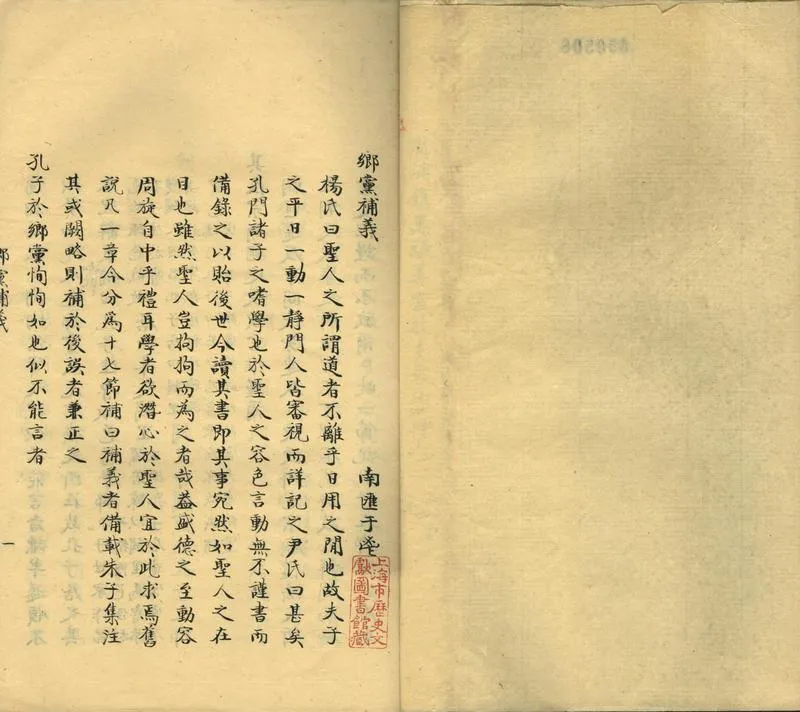 鄉黨補義
南匯于鬯
上海市歷史文
獻圖書館藏
楊氏曰聖人之所謂道者不離乎日用之間也故夫子
之平日一動一靜門人皆審視而詳記之尹氏曰甚矣
孔門諸子之嗜學也於聖人之容色言動無不謹書而
備錄之以貽後世今讀其書即其事宛然如聖人之在
目也雖然聖人豈拘拘而為之者哉蓋盛德之至動容
周旋自中乎禮耳學者欲潛心於聖人宜於此求焉舊
說凡一章今分為十七節補曰補義者備載朱子集注
其或闕略則補於後誤者兼正之
孔子於鄉黨恂恂如也似不能言者
鄉黨補義
一
650506